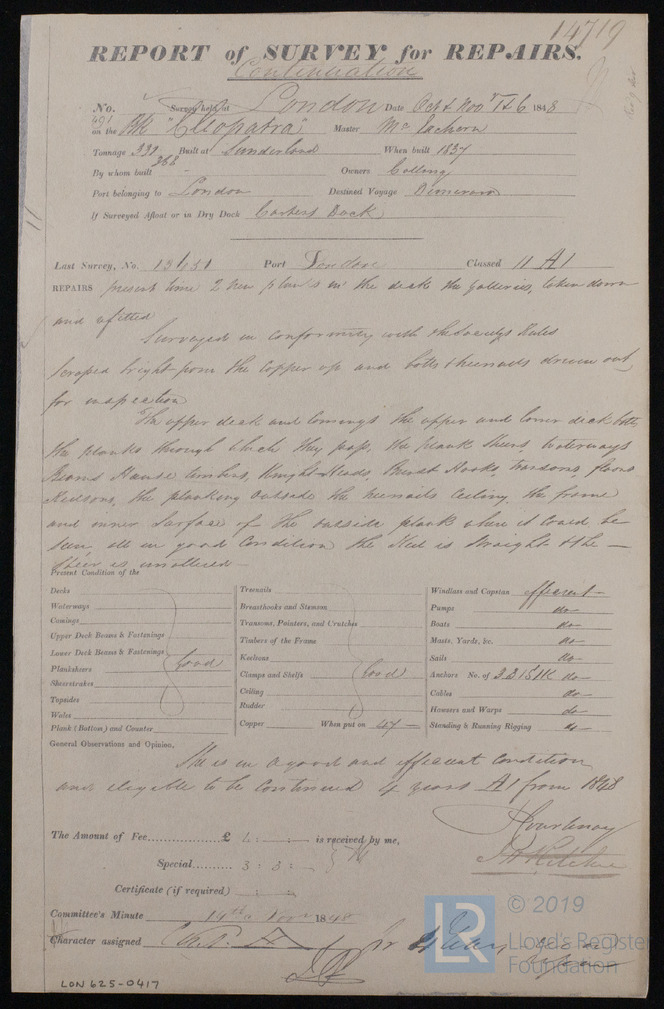 14719
REPORT of SURVEY for REPAIRS.
Continuation
No. Survey held at London Date Oct & Nov 1848
491 on the Bk "Cleopatra" Master
Tonnage 331 Built at Sunderland When built 1837
368
By whom built - Owners Colling
Port belonging to London Destined Voyage
If Surveyed Afloat or in Dry Dock Dock
Last Survey, No. Port London Classed 11 A1
REPAIRS present time 2 new in the deck the galleries, taken down
and refitted
Surveyed in conformity with the Rules
Scraped bright from the Copper up and bolts & treenails driven out
for inspection
The upper deck and Comings the upper and lower deck bolts
the planks through which they pass, the plank Sheers, Waterways
Beams Hawse timbers, Knight Heads, Breast Hooks, transoms, floors
Keelsons, the planking outside the treenails Ceiling, the frame
and inner Surface of the outside plank where it could be
seen all in good Condition the Keel is straight & the —
Sheer is unaltered —
Present Condition of the
Decks
Waterways
Comings
Upper Deck Beams & Fastenings
Lower Deck Beams & Fastenings
Planksheers Good
Sheerstrakes
Topsides
Wales
Plank (Bottom) and Counter
Treenails
Breasthooks and Stemson
Transoms, Pointers, and Crutches
Timbers of the Frame
Keelsons
Clamps and Shelfs Good
Ceiling
Rudder
Copper When put on 47 —
Windlass and Capstan efficient —
Pumps do —
Boats do —
Masts, Yards, &c. do —
Sails do —
Anchors No. of 3 B 1 S 1 K do —
Cables do —
Hawsers and Warps do —
Standing & Running Rigging do —
General Observations and Opinion,
She is in a good and efficient condition
and eligible to be Continued 4 years A1 from 1848
Courtenay
The Amount of Fee £ is received by me,
Special 3 : 3 : -
Certificate (if required)
Committee's Minute 14th Novr 1848
Character assigned
© 2019
LR
Lloyd's Register
Foundation
LON 625-0417